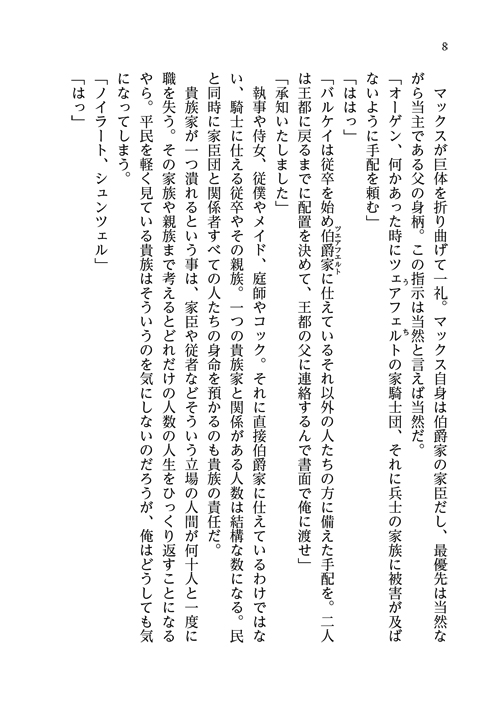 8
マックスが巨体を折り曲げて一礼。マックス自身は伯爵家の家臣だし、最優先は当然な
がら当主である父の身柄。この指示は当然と言えば当然だ。
「オーゲン、何かあった時にツェアフェルトの家騎士団、それに兵士の家族に被害が及ば
ないように手配を頼む」
「ははっ」
「バルケイは従卒を始め伯爵家に仕えているそれ以外の人たちの方に備えた手配を。二人
は王都に戻るまでに配置を決めて、王都の父に連絡するんで書面で俺に渡せ」
「承知いたしました」
執事や侍女、従僕やメイド、庭師やコック。それに直接伯爵家に仕えているわけではな
い、騎士に仕える従卒やその親族。一つの貴族家と関係がある人数は結構な数になる。民
と同時に家臣団と関係者すべての人たちの身命を預かるのも貴族の責任だ。
貴族家が一つ潰れるという事は、家臣や従者などそういう立場の人間が何十人と一度に
職を失う。その家族や親族まで考えるとどれだけの人数の人生をひっくり返すことになる
やら。平民を軽く見ている貴族はそういうのを気にしないのだろうが、俺はどうしても気
になってしまう。
「ノイラート、シュンツェル」
「はっ」